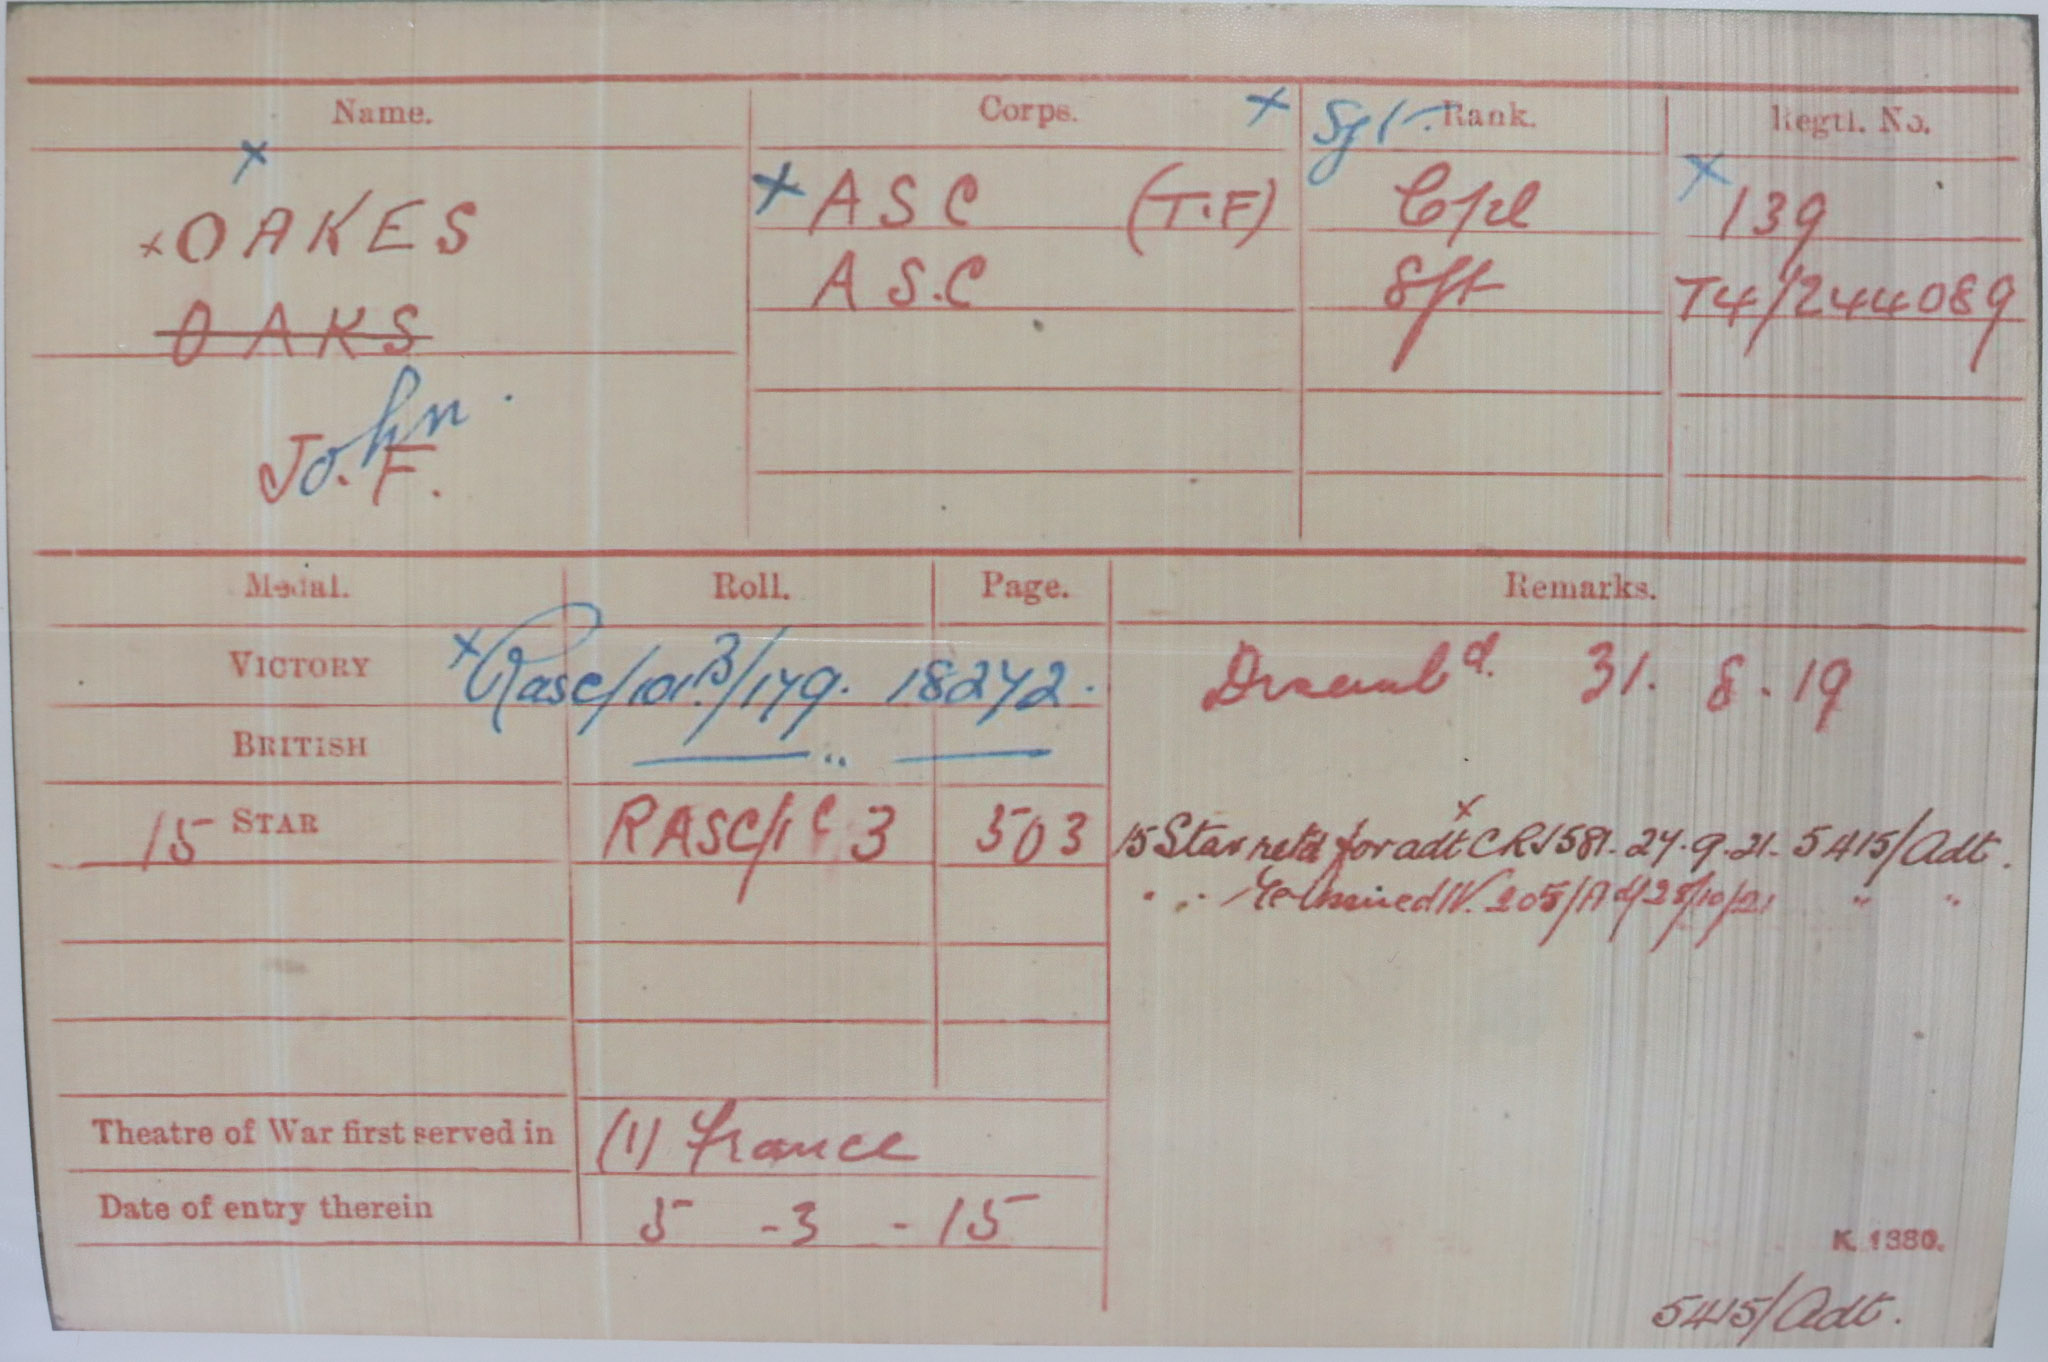 Name. Corps. × Sgt. Rank. Regtl. No.
×
× OAKES × ASC (T.F) Cpl × 139
OAKS A S.C S/St T4/244089
John.
J. F.
Medal. Roll. Page. Remarks.
VICTORY × Rasc/101B/179. 18272. Disembd. 31. 8. 19
BRITISH —— " ——
15 STAR RASC/1C 3 503 15 Star retd for adt CRV581. 27.9.21. 5415/Adt.
" " Re-issued IV. 205/Ad/28/10/21 " "
Theatre of War first served in (1) France
Date of entry therein 5 - 3 - 15
K. 1380.
5415/Adt.